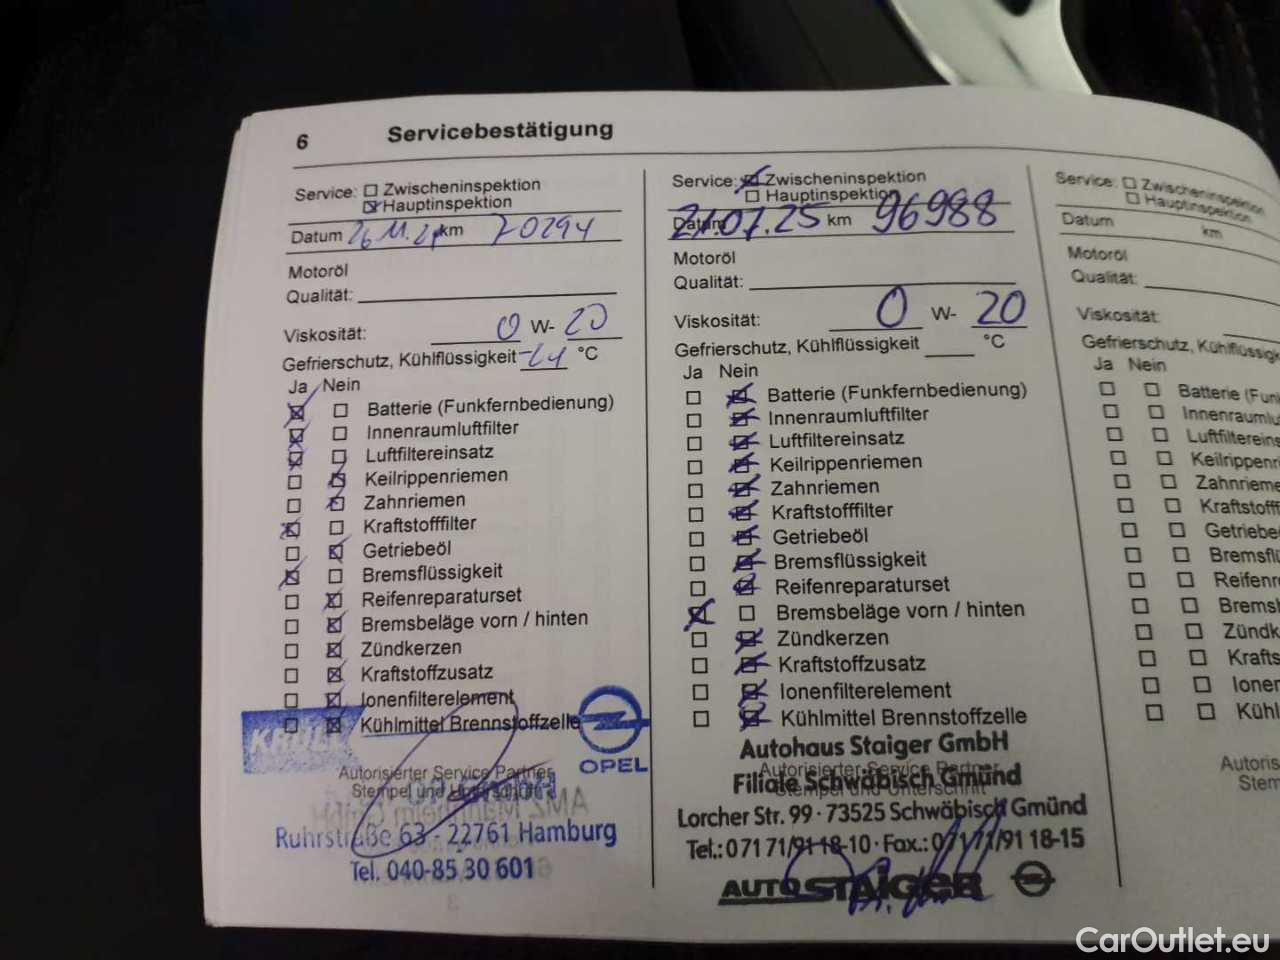 6 Servicebestätigung
Service: Zwischeninspektion
Hauptinspektion
Datum 26.11.24 km 70294
Motoröl
Qualität:
Viskosität: 0 W- 20
Gefrierschutz, Kühlflüssigkeit °C
Ja Nein
Batterie (Funkfernbedienung)
Innenraumluftfilter
Luftfiltereinsatz
Keilrippenriemen
Zahnriemen
Kraftstofffilter
Getriebeöl
Bremsflüssigkeit
Reifenreparaturset
Bremsbeläge vorn / hinten
Zündkerzen
Kraftstoffzusatz
Ionenfilterelement
Kühlmittel Brennstoffzelle
KRÜLL
OPEL
Autorisierter Service Partner
Stempel und Unterschrift
Ruhrstraße 63 - 22761 Hamburg
Tel. 040-85 30 601
Service: Zwischeninspektion
Hauptinspektion
Datum 21.07.25 km 96988
Motoröl
Qualität:
Viskosität: 0 W- 20
Gefrierschutz, Kühlflüssigkeit °C
Ja Nein
Batterie (Funkfernbedienung)
Innenraumluftfilter
Luftfiltereinsatz
Keilrippenriemen
Zahnriemen
Kraftstofffilter
Getriebeöl
Bremsflüssigkeit
Reifenreparaturset
Bremsbeläge vorn / hinten
Zündkerzen
Kraftstoffzusatz
Ionenfilterelement
Kühlmittel Brennstoffzelle
Autohaus Staiger GmbH
Autorisierter Service Partner
Filiale Schwäbisch Gmünd
Stempel und Unterschrift
Lorcher Str. 99 · 73525 Schwäbisch Gmünd
Tel.: 0 71 71/91 18-10 · Fax.: 0 71 71/91 18-15
AUTO STAIGER
Service: Zwischeninspektion
Hauptinspektion
Datum km
Motoröl
Qualität:
Viskosität:
Gefrierschutz, Kühlflüssigk
Ja Nein
Batterie (Fun
Innenraumlu
Luftfiltereins
Keilrippenri
Zahnrieme
Kraftstofff
Getriebe
Bremsflü
Reifenr
Bremsb
Zündk
Krafts
Ionen
Kühl
Autoris
Stem
CarOutlet.eu